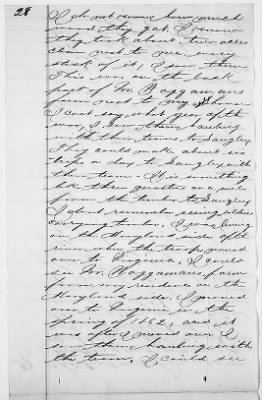 28
I do not know how much
wood they got. I know
they took about two acres
clean next to me, every
stick of it, I saw them.
This was on the back
part of Mr. Waggamans
farm next to my
I cant say what year of the
war, I saw them hauling
with their teams to Langley
They could make about six
trips a day to Langley with
the team. It is something
like three quarters of a mile
from the timber to Langley
I dont remember seeing others
carrying timber. I was living
on the Maryland side of the
river when the troops moved
over to Virginia. I could
see Mr. Waggamans farm
from my residence on the
Maryland side. I moved
over to Virginia in the
spring of 1862, and it
was after I moved over I
saw them hauling with
the team. I could see